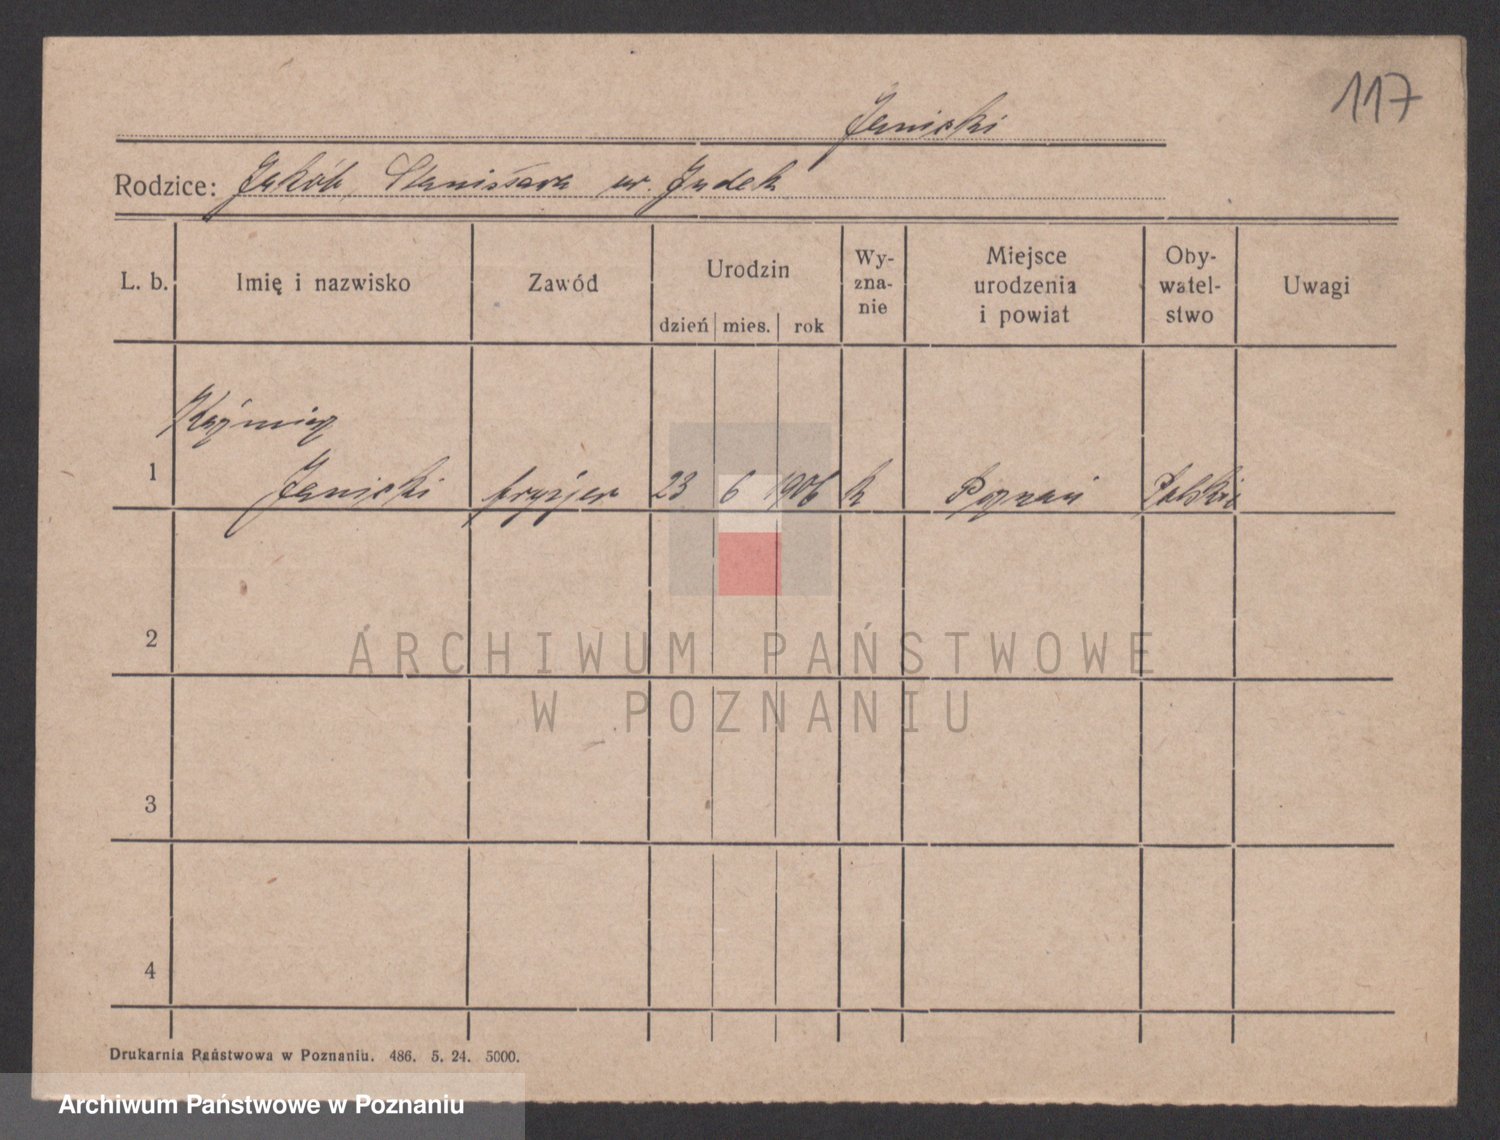 117
Janicki
Rodzice: Jakób, Stanisława ur. Judek
L. b. Imię i nazwisko Zawód Urodzin dzień mies. rok Wy-zna-nie Miejsce urodzenia i powiat Oby-watel-stwo Uwagi
Kaźmierz
1 Janicki fryzjer 23 6 1906 k Poznań Polskie
2
ARCHIWUM PAŃSTWOWE
W POZNANIU
3
4
Drukarnia Państwowa w Poznaniu. 486. 5. 24. 5000.
Archiwum Państwowe w Poznaniu